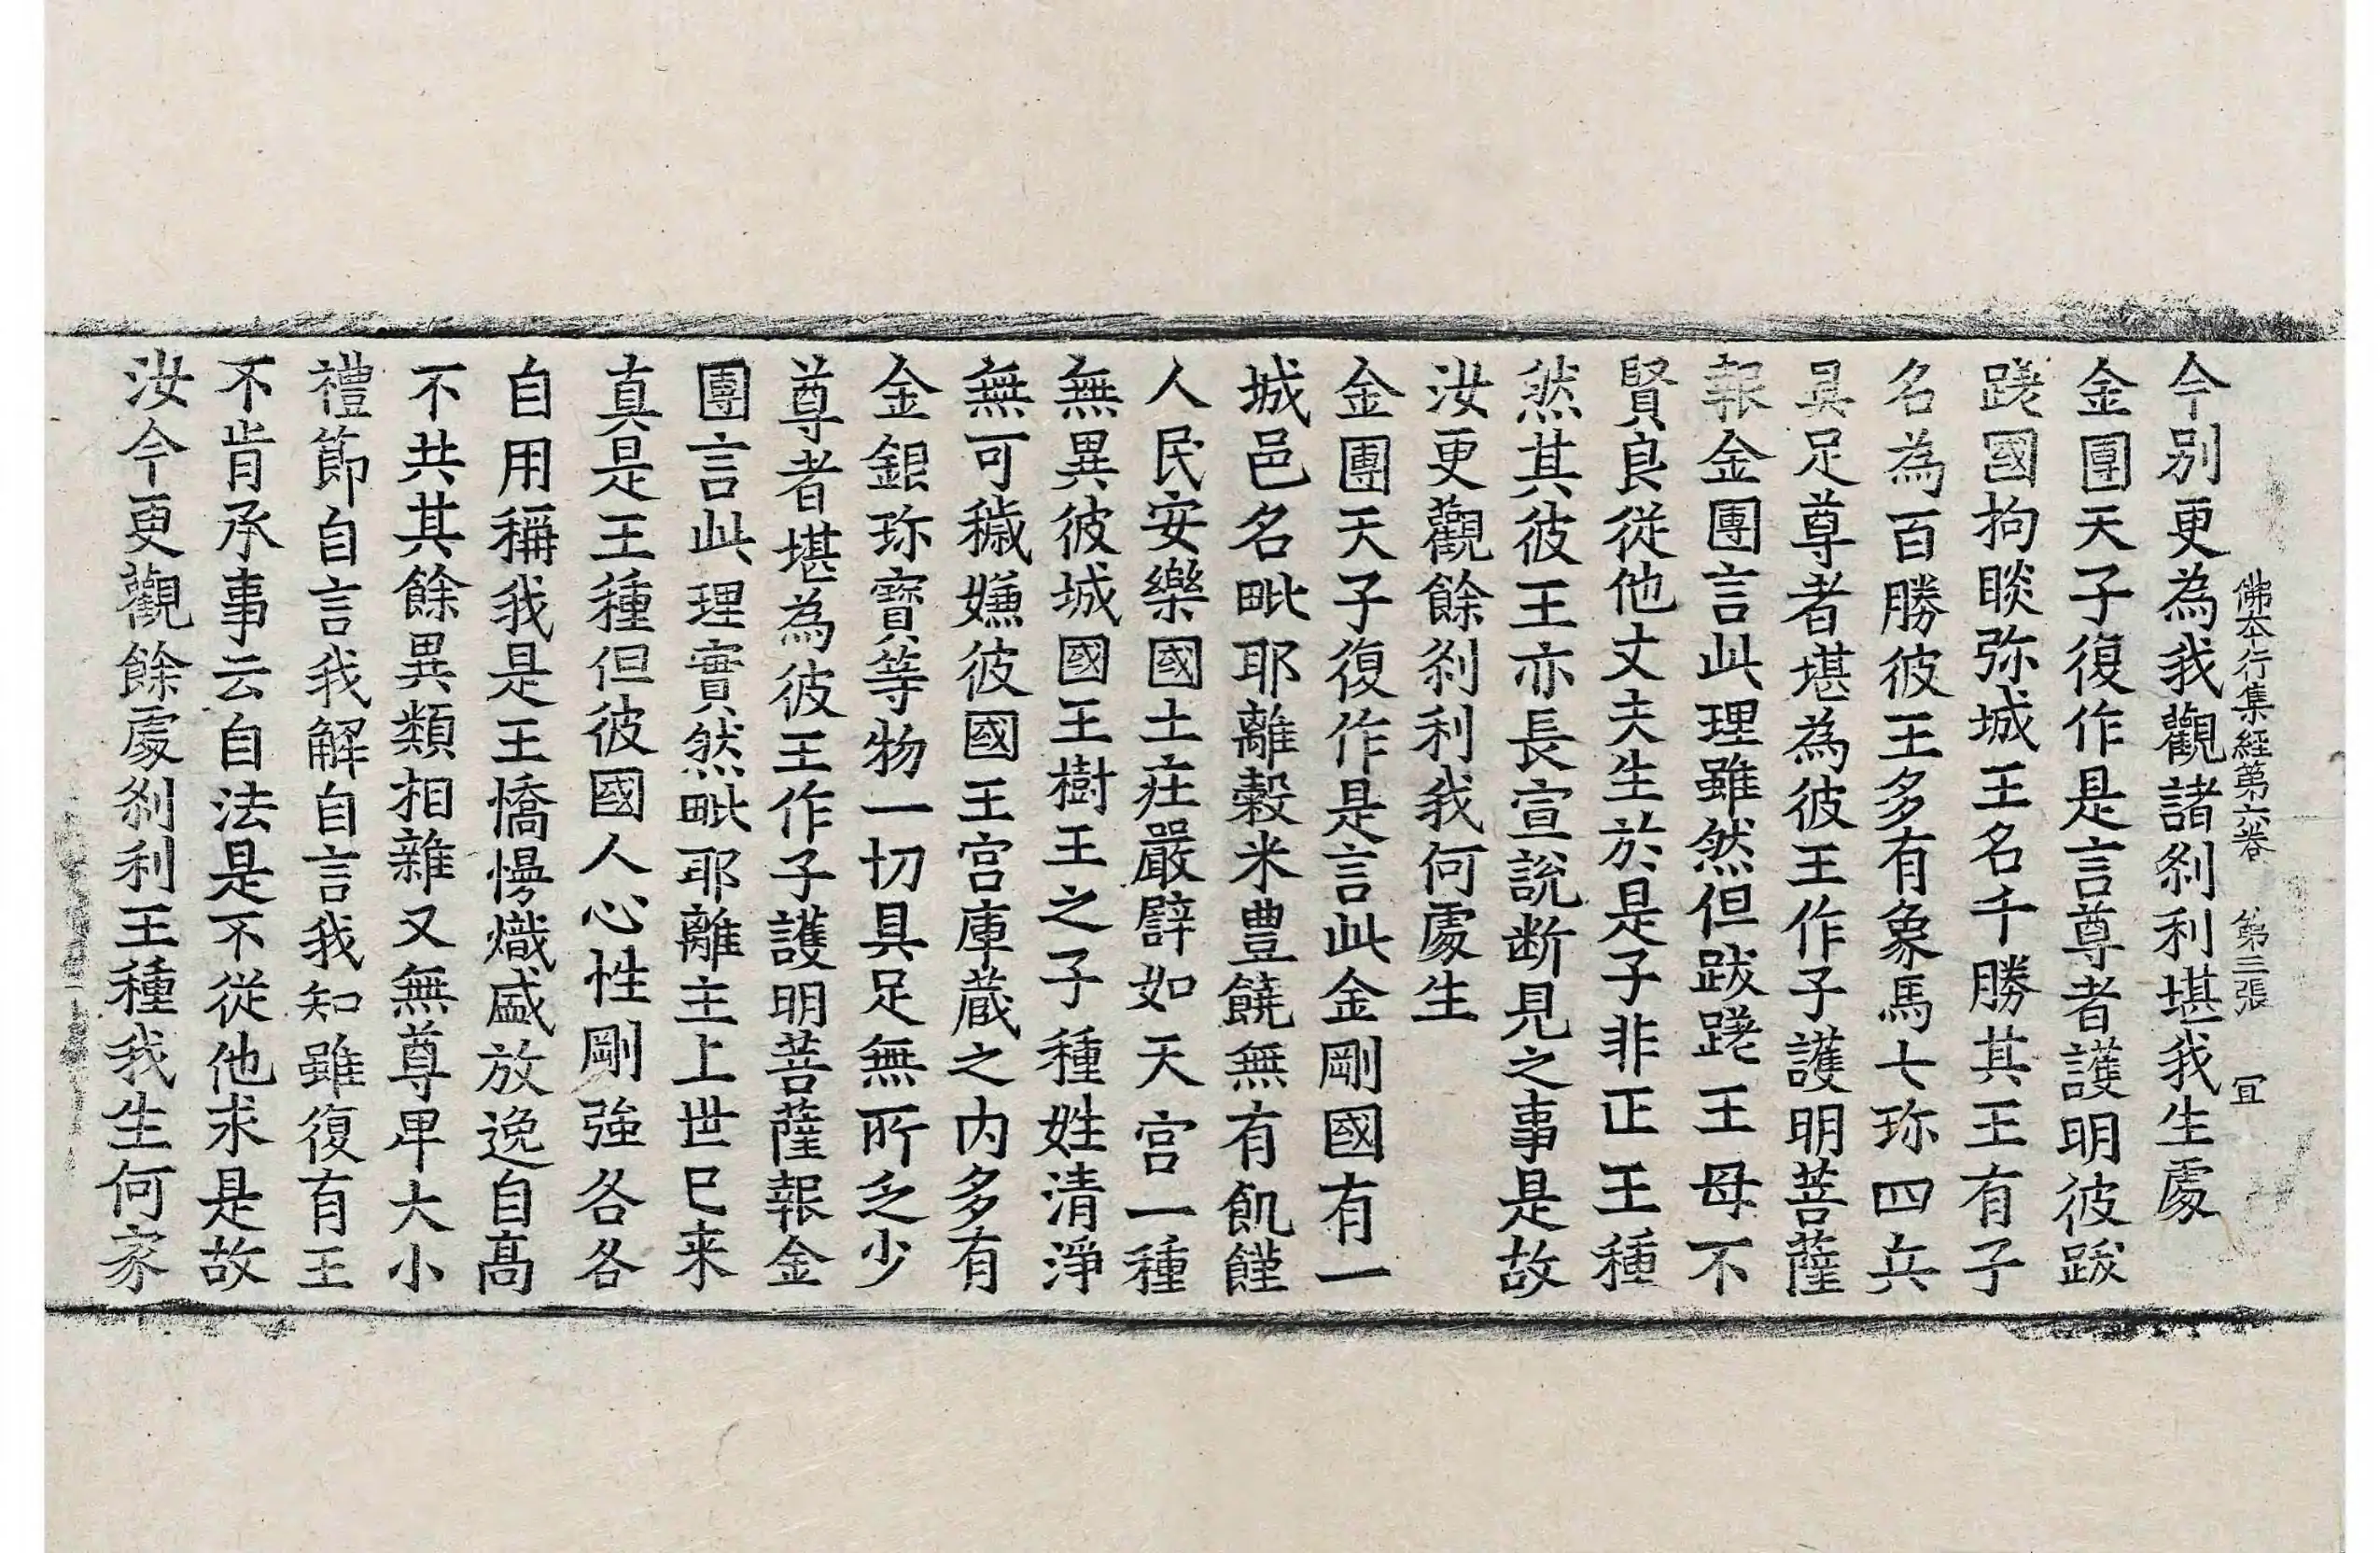 佛本行集經第六卷 第三張 冝
今別更為我觀諸剎利堪我生處
金團天子復作是言尊者護明彼跋
蹉國拘睒弥城王名千勝其王有子
名為百勝彼王多有象馬七珎四兵
具足尊者堪為彼王作子護明菩薩
報金團言此理雖然但跋蹉王母不
賢良從他丈夫生於是子非正王種
然其彼王亦長宣說断見之事是故
汝更觀餘剎利我何處生
金團天子復作是言此金剛國有一
城邑名毗耶離穀米豊饒無有飢饉
人民安樂國土庄嚴譬如天宮一種
無異彼城國王樹王之子種姓清淨
無可穢嫌彼國王宮庫蔵之內多有
金銀珎寶等物一切具足無所乏少
尊者堪為彼王作子護明菩薩報金
團言此理實然毗耶離主上世已来
真是王種但彼國人心性剛強各各
自用稱我是王憍慢熾盛放逸自髙
不共其餘異類相雜又無尊卑大小
禮節自言我解自言我知雖復有王
不肯承事云自法是不從他求是故
汝今更觀餘處剎利王種我生何家